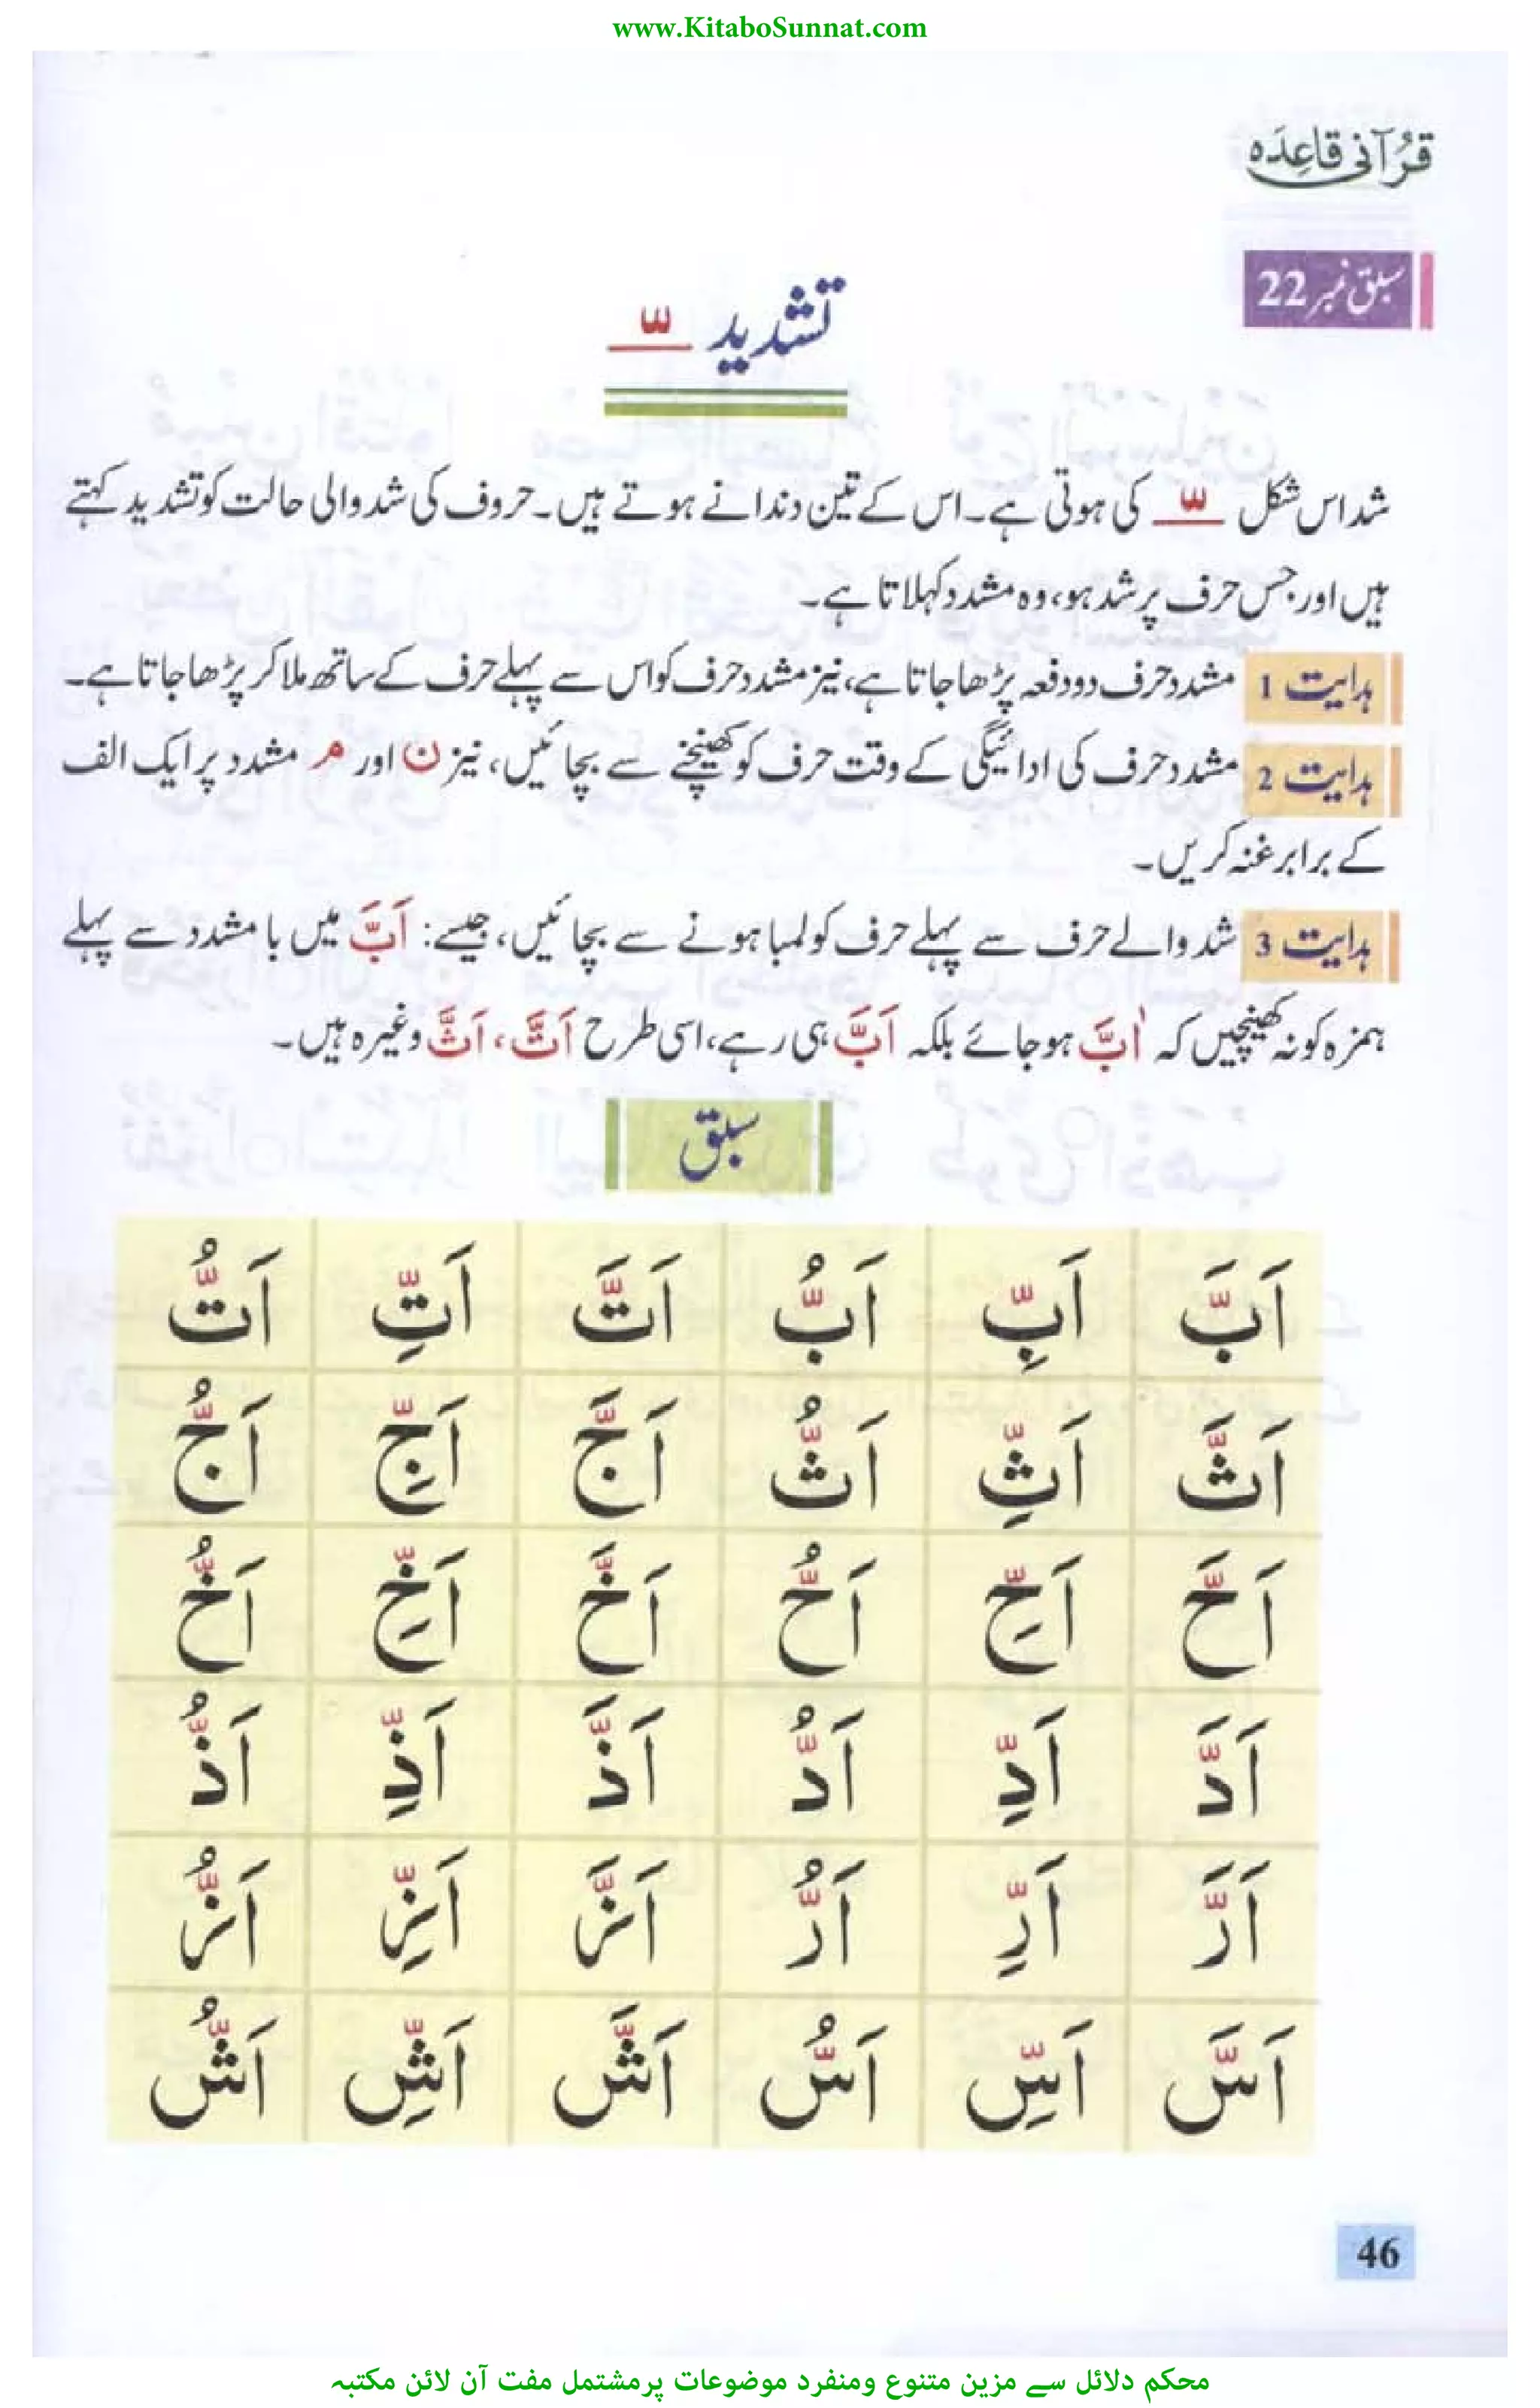 www.KitaboSunnat.com
قُرْآنی قَاعِدَہ
سبق نمبر 22
تشدید ـّـ
شد اس شکل ـّـ کی ہوتی ہے۔ اس کے تین دندانے ہوتے ہیں۔ حروف کی شد والی حالت کو تشدید کہتے
ہیں اور جس حرف پر شد ہو، وہ مشدد کہلاتا ہے۔
ہدایت 1 مشدد حرف دو دفعہ پڑھا جاتا ہے، نیز مشدد حرف کو اس سے پہلے حرف کے ساتھ ملا کر پڑھا جاتا ہے۔
ہدایت 2 مشدد حرف کی ادائیگی کے وقت حرف کو کھینچنے سے بچائیں، نیز ن اور م مشدد پر ایک الف
کے برابر غنہ کریں۔
ہدایت 3 شد والے حرف سے پہلے حرف کو لمبا ہونے سے بچائیں، جیسے: اَبَّ میں با مشدد سے پہلے
ہمزہ کو نہ کھینچیں کہ اٰبَّ ہو جائے بلکہ اَبَّ ہی رہے، اسی طرح اَتَّ، اَثَّ وغیرہ ہیں۔
سبق
اَبَّ اَبِّ اَبُّ اَتَّ اَتِّ اَتُّ
اَثَّ اَثِّ اَثُّ اَجَّ اَجِّ اَجُّ
اَحَّ اَحِّ اَحُّ اَخَّ اَخِّ اَخُّ
اَدَّ اَدِّ اَدُّ اَذَّ اَذِّ اَذُّ
اَرَّ اَرِّ اَرُّ اَزَّ اَزِّ اَزُّ
اَسَّ اَسِّ اَسُّ اَشَّ اَشِّ اَشُّ
46
محکم دلائل سے مزین متنوع ومنفرد موضوعات پرمشتمل مفت آن لائن مکتبہ